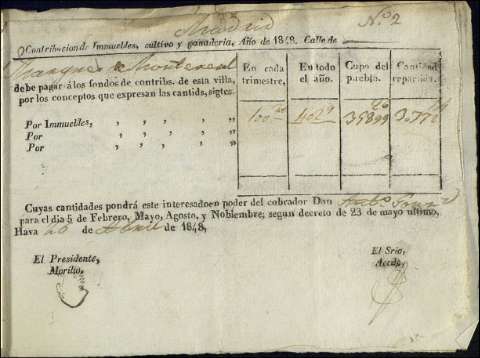 Madrid
N.º 2
Contribucion de Inmuebles, cultivo y ganaderia, Año de 1848, Calle de
Marques de Montereal
debe pagar á los fondos de contribs. de esta villa,
por los conceptos que expresan las cantids, sigtes.
En cada trimestre.
En todo el año.
Cupo del pueblo.
Cantidad repartida.
Por Inmuebles, , , , ,
Por , , , ,
Por , , , ,
100
402
Cuyas cantidades pondrá este interesado en poder del cobrador Don
para el dia 5 de Febrero, Mayo, Agosto, y Nobiembre; segun decreto de 23 de mayo ultimo,
Hava 20 de Abril de 1848,
El Presidente,
Morillo,
El Srio,